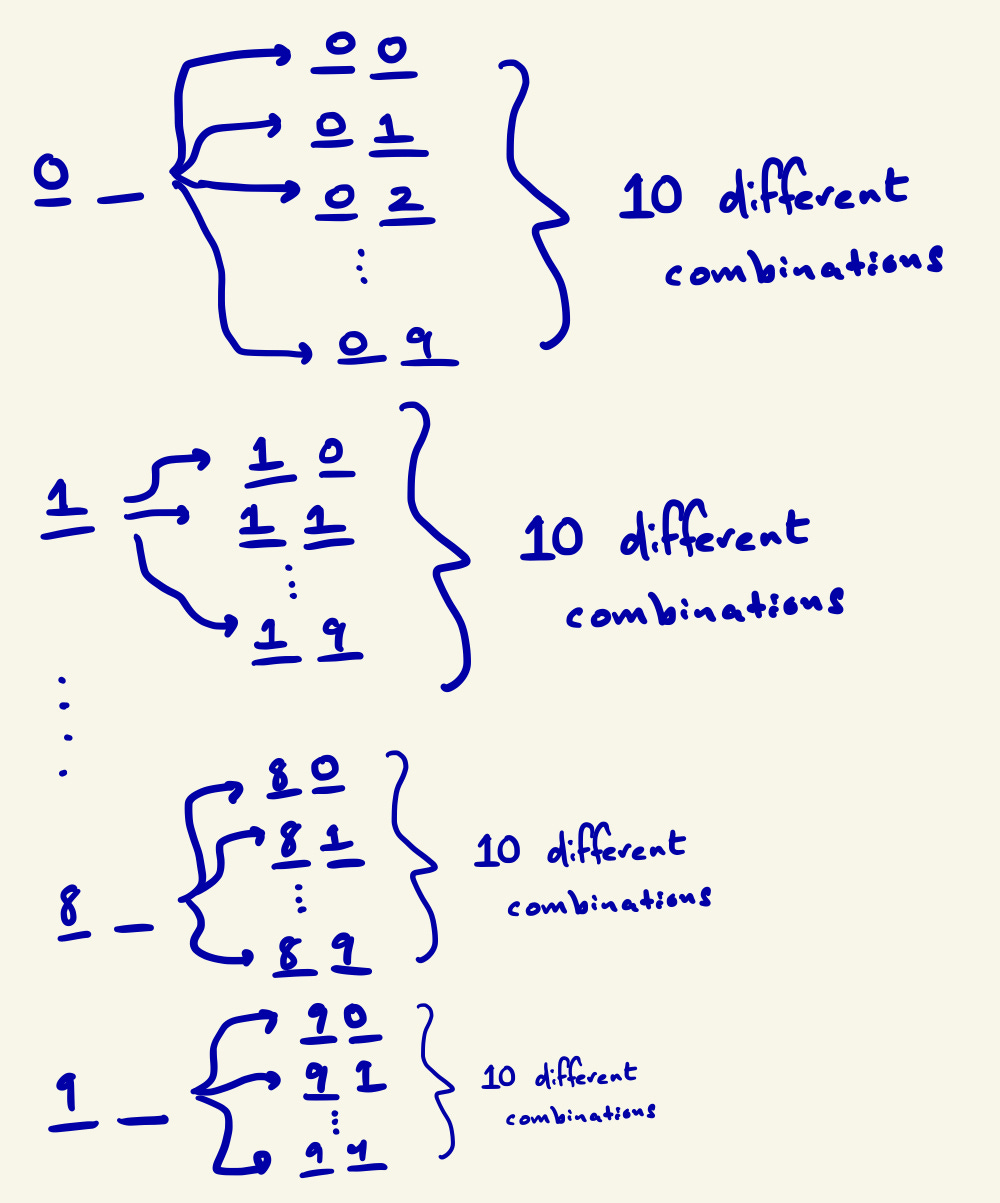 0 0
0 1
0 _
0 2
10 different
combinations
⋮
0 9
1 0
1
1 1
10 different
combinations
⋮
1 9
⋮
8 0
8 1
10 different
combinations
8 _
⋮
8 9
9 0
9 1
10 different
combinations
9 _
⋮
9 9